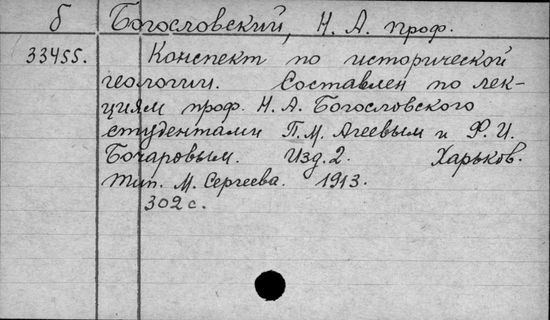 Б Богословский, Н. А. проф.
33455. Конспект по исторической
геологии. Составлен по лек-
циям проф. Н. А. Богословского
студентами П. М. Агеевым и Ф. И.
Бочаровым. Изд. 2. Харьков.
Тип. М. Сергеева. 1913.
302 с.